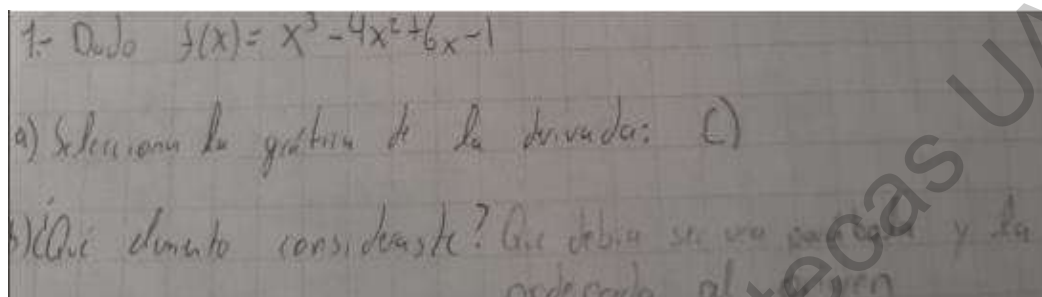 1.- Dado f(x) = x³ - 4x² + 6x - 1
a) Selecciona la gráfica de la derivada: C)
b) ¿Qué elemento consideraste? Que debia ser una parábola y la
ordenada al origen
tecas UA